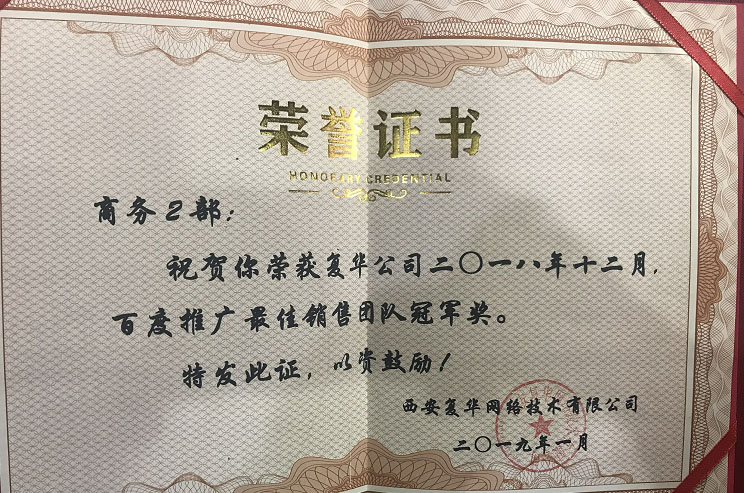 荣誉证书
HONORARY CREDENTIAL
商务2部：
祝贺你荣获复华公司二〇一八年十二月，
百度推广最佳销售团队冠军奖。
特发此证，以资鼓励！
西安复华网络技术有限公司
二〇一九年一月